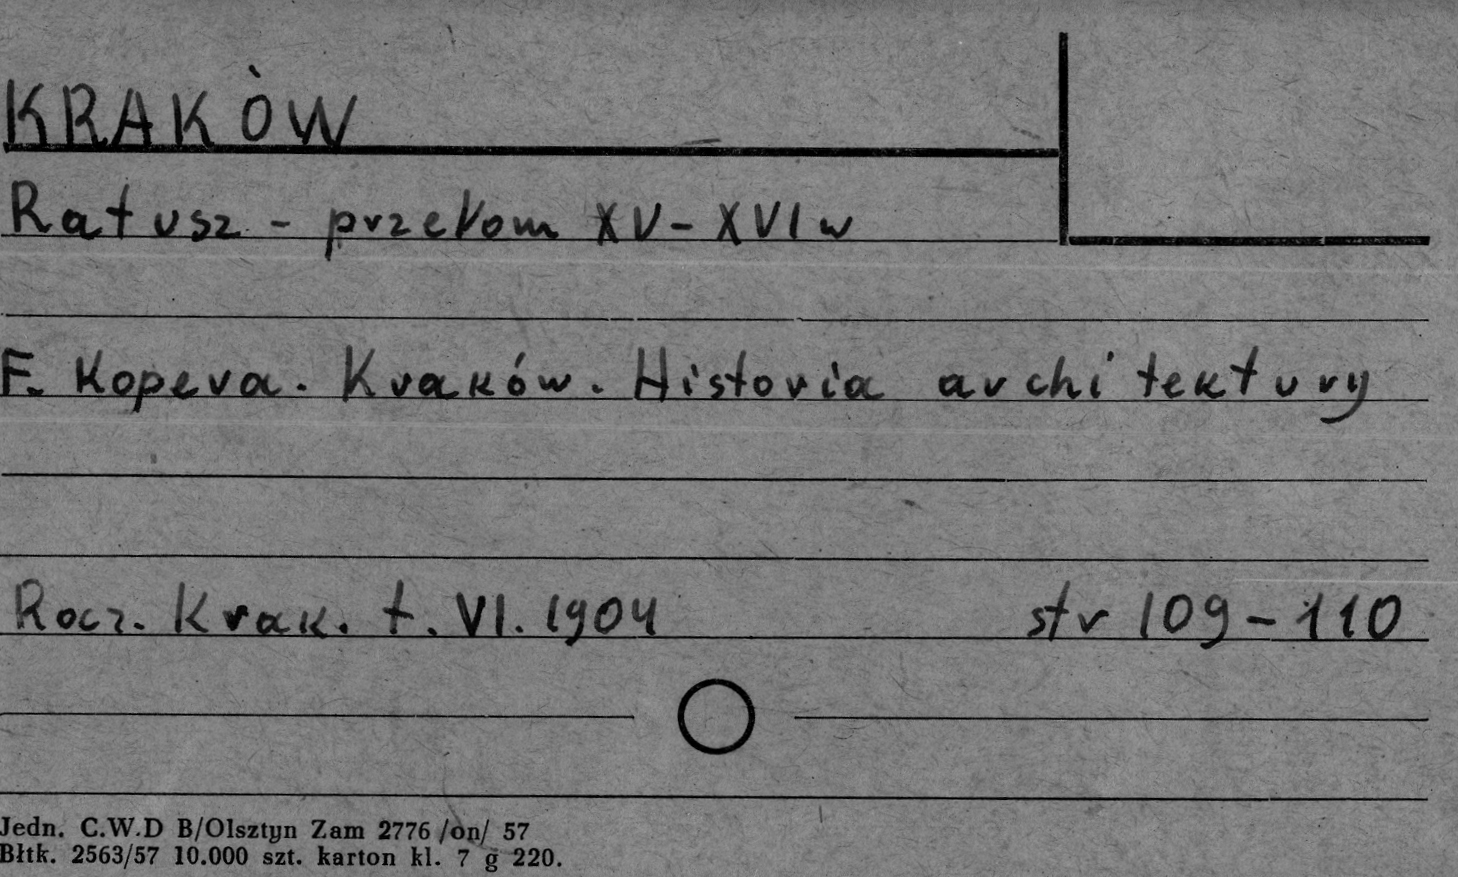 KRAKÓW
Ratusz - przełom XV-XVI w
F. Kopera. Kraków. Historia architektury
Rocz. Krak. t. VI. 1904 str 109-110
Jedn. C.W.D B/Olsztyn Zam 2776 /on/ 57
Błtk. 2563/57 10.000 szt. karton kl. 7 g 220.